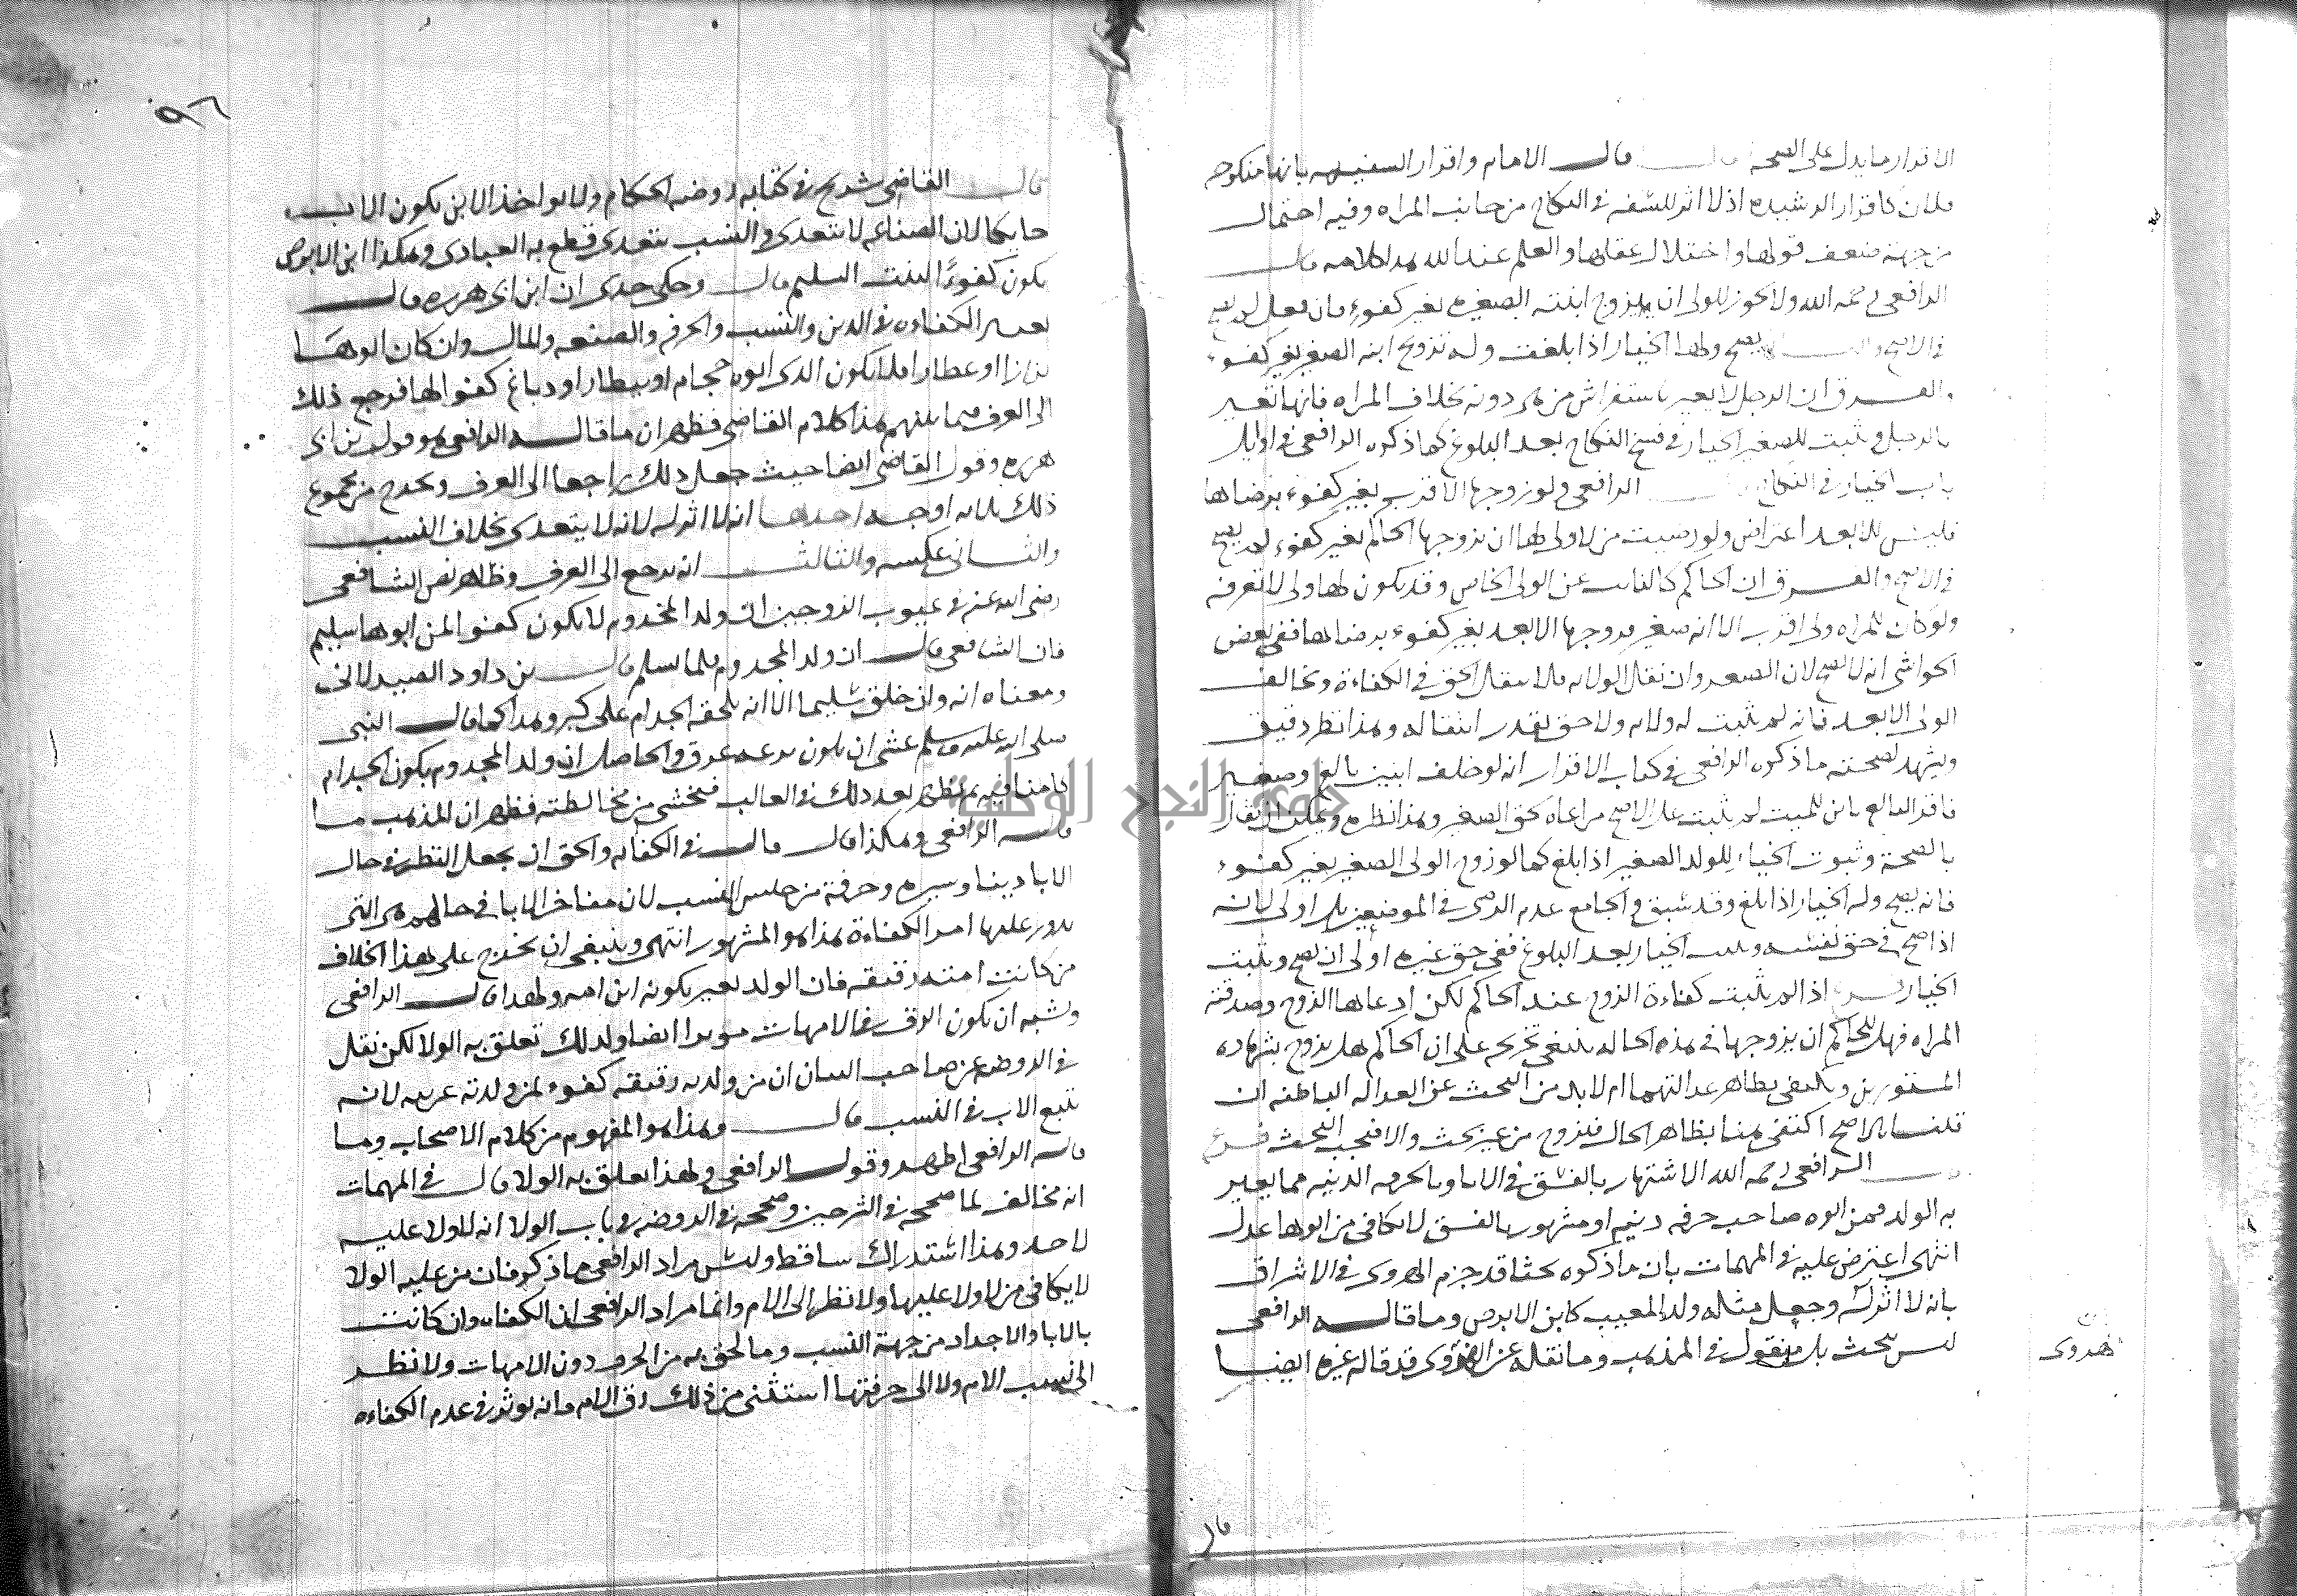 الاقرار ما يدل على الصحة قال الامام واقرار السفيهه بانها منكوحه
فلان كاقرار الرشيده اذ لا اثر للسفه في النكاح من جانب المراه وفيه احتمال
من جهة ضعف قولها واختلال عقلها والعلم عند الله هذا كلامه قال
الرافعي رحمه الله ولا يجوز للولي ان يزوج ابنته الصغيره بغير كفوء فان فعل لم يصح
في الاصح يصح ولها الخيار اذا بلغت وله تزويج ابنه الصغير بغير كفوء
والفرق ان الرجل لا يعير باستفراش من هي دونه بخلاف المراه فانها تعير
بالرجل ويثبت للصغير الخيار في فسخ النكاح بعد البلوغ كما ذكره الرافعي في اوايل
باب الخيار في النكاح الرافعي ولو زوجها الاقرب بغير كفوء برضاها
فليس للابعد اعتراض ولو رضيت من لا ولي لها ان يزوجها الحاكم بغير كفوء لم يصح
في الاصح والفرق ان الحاكم كالنائب عن الولي الخاص وقد يكون لها ولي لا تعرفه
ولو كان للمراه ولي اقرب الا انه صغير فزوجها الابعد بغير كفوء برضاها ففي بعض
الحواشي انه لا يصح لان الصغر وان نقل الولايه فلا ينقل الحق في الكفاءة ويخالف
الولي الابعد فانه لم يثبت له ولايه ولا حق يقدر انتقاله وهذا نظر دقيق
ويشهد لصحته ما ذكره الرافعي في كتاب الاقرار انه لو خلف ابنين بالغ وصغير
فاقر البالغ بابن للميت لم يثبت على الاصح مراعاه لحق الصغير وهذا نظيره ويمكن ان يقال
بالصحة وثبوت الخيار للولد الصغير اذا بلغ كما لو زوج الولي الصغير بغير كفوء
فانه يصح وله الخيار اذا بلغ وقد سبق والجامع عدم الرضى في الموضعين بل اولى لانه
اذا صح في حق نفسه ويثبت الخيار بعد البلوغ ففي حق غيره اولى ان يصح ويثبت
الخيار اذا لم يثبت كفاءة الزوج عند الحاكم لكن ادعاها الزوج وصدقته
المراه فهل للحاكم ان يزوجها في هذه الحاله ينبغي تخريجه على ان الحاكم هل يزوج بشهاده
المستورين ويكتفي بظاهر عدالتهما ام لا بد من البحث عن العداله الباطنه ان
قلنا بالاصح اكتفي هنا بظاهر الحال فيزوج من غير بحث والا فيجب البحث فرع
الرافعي رحمه الله الاشتهار بالفسق في الابا وبالحرفه الدنيه مما يعير
به الولد فمن ابوه صاحب حرفه دنيه او مشهور بالفسق لا يكافي من ابوها عدل
انتهى اعترض عليه في المهمات بان ما ذكره بحثا قد جزم الهروى في الاشراف
بانه لا اثر له وجعل مثله ولد المعيب كابن الابرص وما قاله الرافعي
ليس ببحث بل منقول في المذهب وما نقله عن الهروى قد قاله غيره ايضا
الهروى
قال
٩٦
قال القاضي شريح في كتابه روضه الحكام ولا يواخذ الابن بكون الاب
حايكا لان الصناعه لا تتعدى والنسب يتعدى قطع به العبادى وهكذا ابن الابرص
يكون كفوءًا لبنت السليم قال وحكى جدى ان ابن ابي هريره قال
تعتبر الكفاءه في الدين والنسب والحرفه والصنعه والمال وان كان ابوها
بزازا او عطارا فلا يكون الذى ابوه حجام او بيطار او دباغ كفوا لها فرجع ذلك
الى العرف فيما بينهم هذا كلام القاضي فظهر ان ما قاله الرافعي هو قول بن ابي
هريره وقول القاضي ايضا حيث جعل ذلك راجعا الى العرف ويخرج من مجموع
ذلك ثلاثه اوجه احدها انه لا اثر له لانه لا يتعدى بخلاف النسب
والثاني عكسه والثالث انه يرجع الى العرف وظاهر نص الشافعي
رضي الله عنه في عيوب الزوجين ان ولد المجذوم لا يكون كفوا لمن ابوها سليم
فان الشافعي قال ان ولد المجذوم قلما يسلم قال بن داود الصيدلاني
ومعناه انه وان خلق سليما الا انه يلحقه الجذام على كبر وهذا كما قال النبي
صلى الله عليه وسلم عسى ان يكون نزعه عرق والحاصل ان ولد المجذوم يكون الجذام
كامنا فيه يظهر بعد ذلك في الغالب فيخشى من مخالطته فظهر ان المذهب ما
قاله الرافعي وهكذا قال قال في الكفايه والحق ان يجعل النظر في حال
الابا دينا وسيره وحرفة من حيث النسب لان مفاخر الابا في حالهم هي التي
يدور عليها امر الكفاءة هذا هو المشهور انتهى وينبغي ان يخرج على هذا الخلاف
من كانت امته رقيقه فان الولد يعير بكونه ابن امه ولهذا قال الرافعي
ويشبه ان يكون الرق في الامهات موثرا ايضا ولذلك تعلق به الولا لكن نقل
في الروضه عن صاحب البيان ان من ولدته رقيقه كفوء لمن ولدته عربيه لانه
تتبع الاب في النسب قال وهذا هو المفهوم من كلام الاصحاب وما
قاله الرافعي اظهر وقول الرافعي ولهذا تعلق به الولا قال في المهمات
انه مخالف لما صححه في الشرحين وصححه في الروضه في باب الولا انه لا ولا عليه
لاحد وهذا استدراك ساقط وليس مراد الرافعي ما ذكره فان من عليه الولا
لا يكافي من لا ولا عليها ولا نظر الى الام وانما مراد الرافعي ان الكفاءه وان كانت
بالابا والاجداد من جهة النسب وما لحق به من الحرف دون الامهات ولا نظر
الى نسب الام ولا الى حرفتها استثنى من ذلك رق الام فانه يوثر في عدم الكفاءه